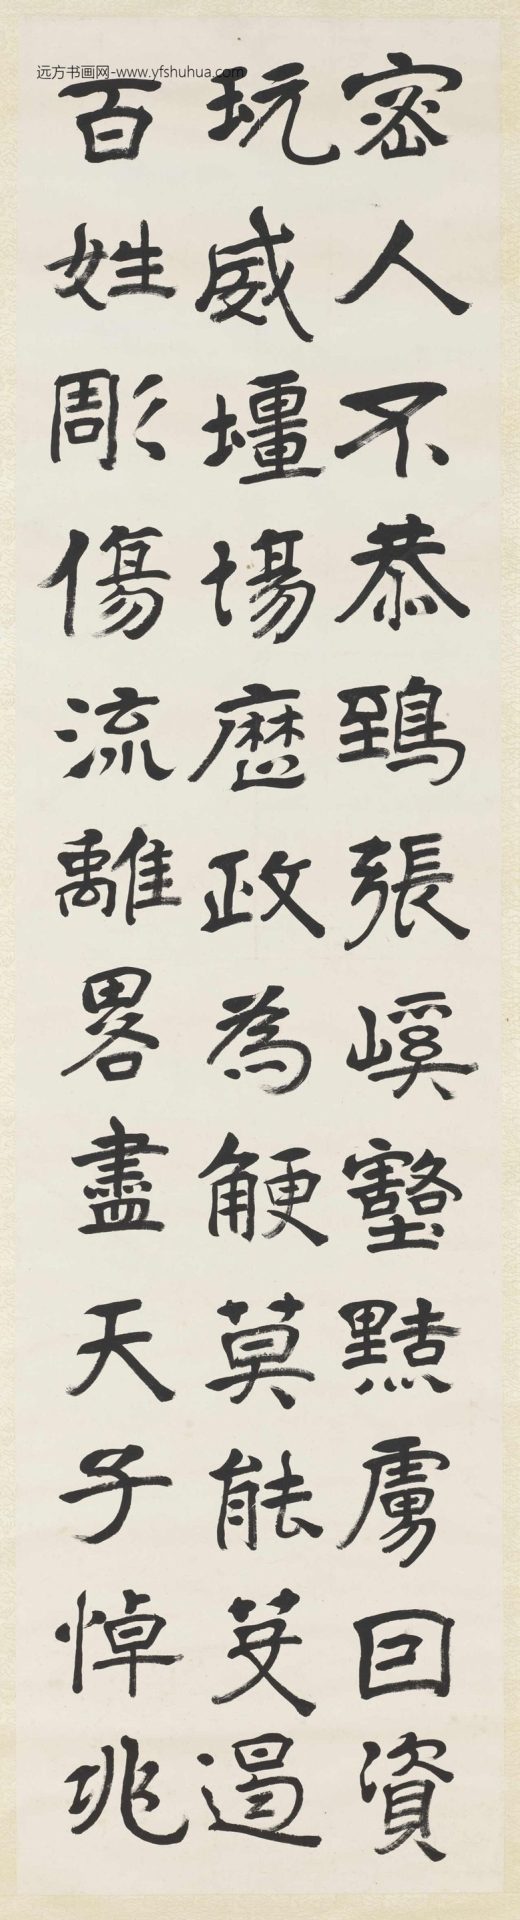 远方书画网-www.yfshuhua.com
密人不恭鵄張嵠壑黠虜回資
玩威壃埸歷政為鯁莫能芟遏
百姓彫傷流離畧盡天子悼兆